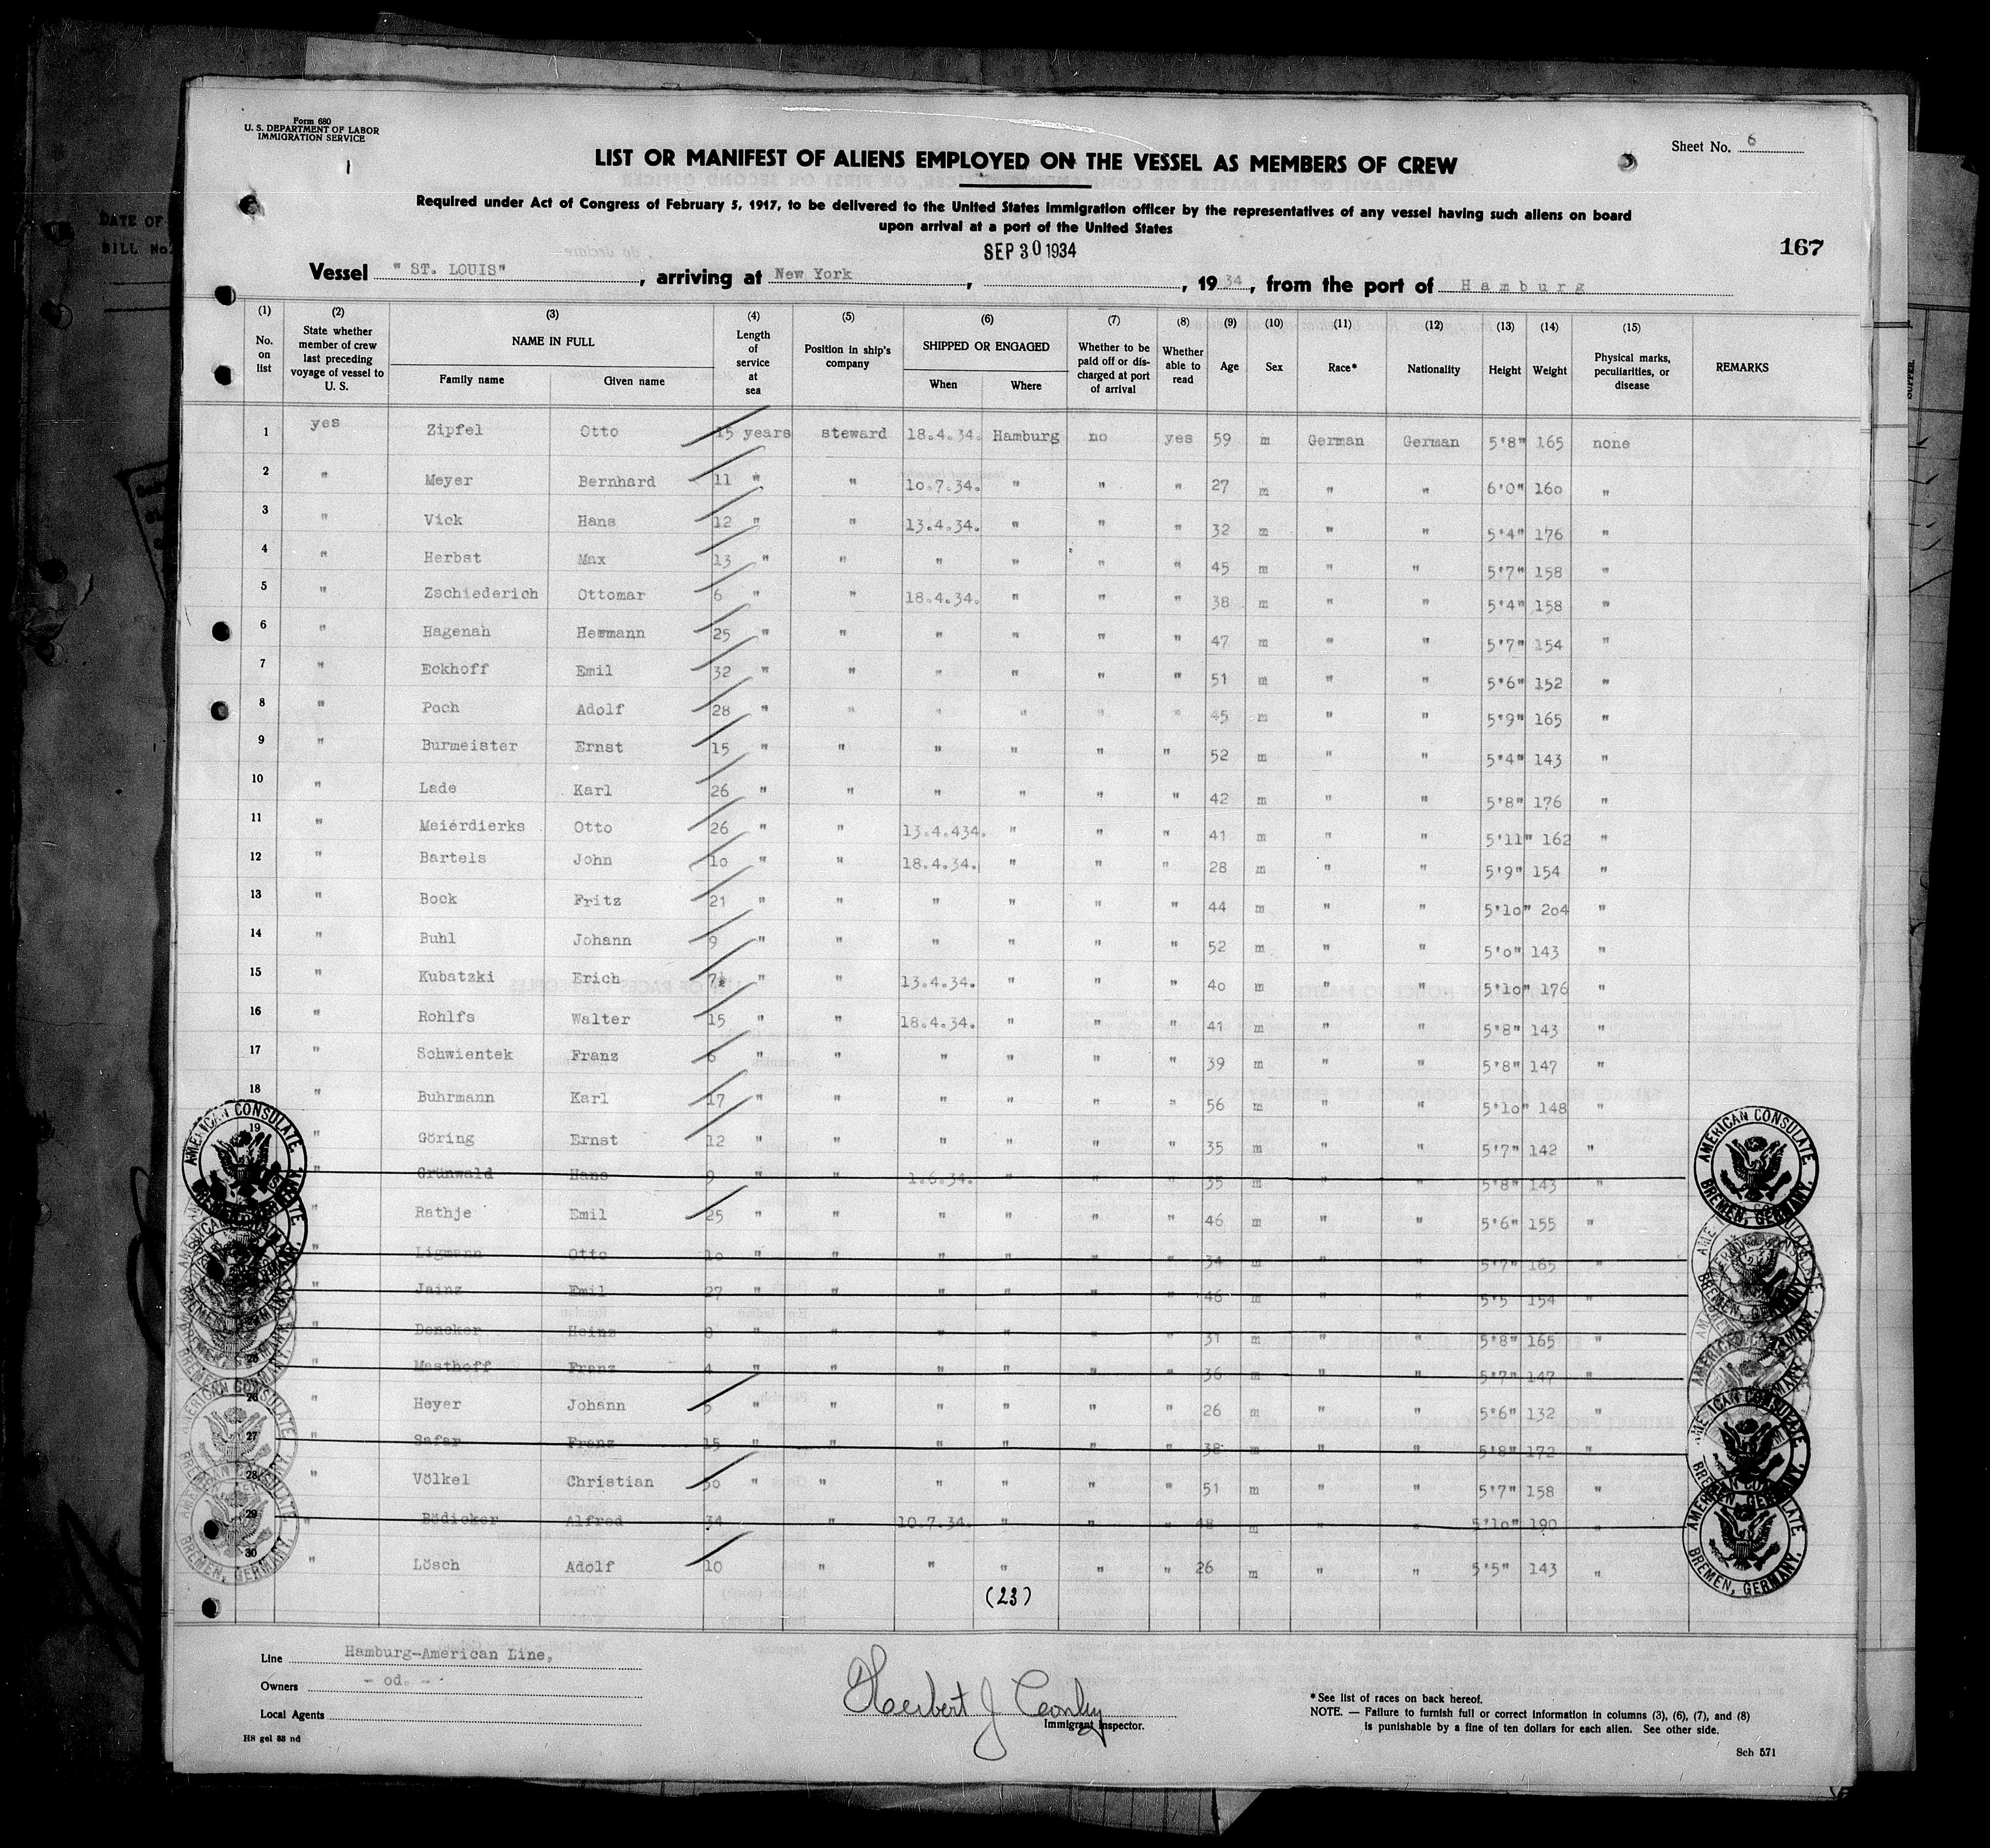 Form 680
U. S. DEPARTMENT OF LABOR
IMMIGRATION SERVICE
Sheet No. 6
LIST OR MANIFEST OF ALIENS EMPLOYED ON THE VESSEL AS MEMBERS OF CREW
Required under Act of Congress of February 5, 1917, to be delivered to the United States immigration officer by the representatives of any vessel having such aliens on board
upon arrival at a port of the United States
SEP 30 1934
167
Vessel "ST. LOUIS", arriving at New York, , 1934, from the port of Hamburg
(1) No. on list (2) State whether member of crew last preceding voyage of vessel to U. S. (3) NAME IN FULL Family name Given name (4) Length of service at sea (5) Position in ship's company (6) SHIPPED OR ENGAGED When Where (7) Whether to be paid off or discharged at port of arrival (8) Whether able to read (9) Age (10) Sex (11) Race* (12) Nationality (13) Height (14) Weight (15) Physical marks, peculiarities, or disease REMARKS
1 yes Zipfel Otto 15 years steward 18.4.34. Hamburg no yes 59 m German German 5'8" 165 none
2 " Meyer Bernhard 11 " " 10.7.34. " " " 27 m " " 6'0" 160 "
3 " Vick Hans 12 " " 13.4.34. " " " 32 m " " 5'4" 176 "
4 " Herbst Max 13 " " " " " " 45 m " " 5'7" 158 "
5 " Zschiederich Ottomar 6 " " 18.4.34. " " " 38 m " " 5'4" 158 "
6 " Hagenah Hermann 25 " " " " " " 47 m " " 5'7" 154 "
7 " Eckhoff Emil 32 " " " " " " 51 m " " 5'6" 152 "
8 " Poch Adolf 28 " " " " " " 45 m " " 5'9" 165 "
9 " Burmeister Ernst 15 " " " " " " 52 m " " 5'4" 143 "
10 " Lade Karl 26 " " " " " " 42 m " " 5'8" 176 "
11 " Meierdierks Otto 26 " " 13.4.434. " " " 41 m " " 5'11" 162 "
12 " Bartels John 10 " " 18.4.34. " " " 28 m " " 5'9" 154 "
13 " Bock Fritz 21 " " " " " " 44 m " " 5'10" 204 "
14 " Buhl Johann 9 " " " " " " 52 m " " 5'0" 143 "
15 " Kubatzki Erich 7½ " " 13.4.34. " " " 40 m " " 5'10" 176 "
16 " Rohlfs Walter 15 " " 18.4.34. " " " 41 m " " 5'8" 143 "
17 " Schwientek Franz 6 " " " " " " 39 m " " 5'8" 147 "
18 " Buhrmann Karl 17 " " " " " " 56 m " " 5'10" 148 "
19 " Göring Ernst 12 " " " " " " 35 m " " 5'7" 142 "
" Grünwald Hans 9 " " 1.6.34. " " " 35 m " " 5'8" 143 "
" Rathje Emil 25 " " " " " " 46 m " " 5'6" 155 "
" Ligmann Otto 10 " " " " " " 34 m " " 5'7" 165 "
" Jainz Emil 27 " " " " " " 46 m " " 5'5 154 "
" Dencker Heinz 8 " " " " " " 31 m " " 5'8" 165 "
25 " Masthoff Franz 4 " " " " " " 36 m " " 5'7" 147 "
26 " Heyer Johann 5 " " " " " " 26 m " " 5'6" 132 "
27 " Safar Franz 15 " " " " " " 38 m " " 5'8" 172 "
28 " Völkel Christian 30 " " " " " " 51 m " " 5'7" 158 "
29 " Bödicker Alfred 34 " 10.7.34. " " " 48 m " " 5'10" 190 "
30 " Lösch Adolf 10 " " " " " 26 m " " 5'5" 143 "
(23)
AMERICAN CONSULATE, BREMEN, GERMANY.
AMERICAN CONSULATE BREMEN, GERMANY.
Line Hamburg-American Line,
Owners - od. -
Local Agents
HR gel 88 nd
Herbert J Conley
Immigrant Inspector.
*See list of races on back hereof.
NOTE. — Failure to furnish full or correct information in columns (3), (6), (7), and (8)
is punishable by a fine of ten dollars for each alien. See other side.
Sch 571
DATE OF
BILL No.